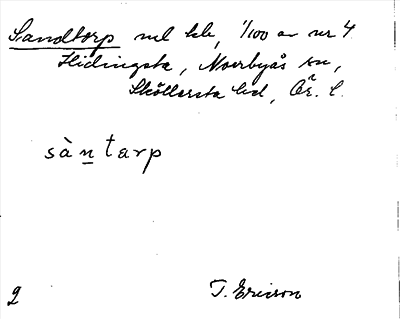 Sandtorp mel heb, 1/100 av nr 4
Hidingsta, Norrbyås sn,
Sköllersta hd, Ör. l.
sàn̲tarp
2 T. Ericson